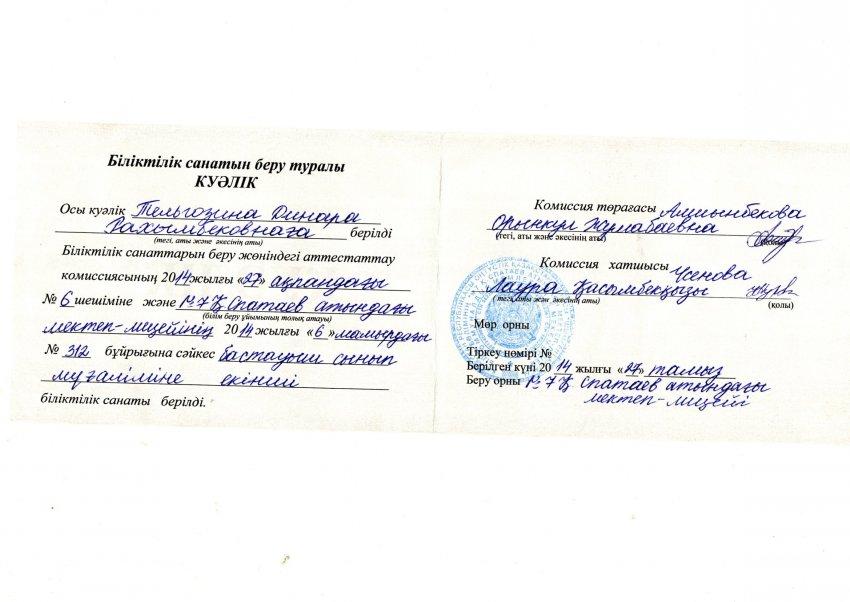 Біліктілік санатын беру туралы
КУӘЛІК
Осы куәлік Тельгозина Динара
Рахымбековнаға берілді
(тегі, аты және әкесінің аты)
Біліктілік санаттарын беру жөніндегі аттестаттау
комиссиясының 2014 жылғы «27» ақпандағы
№ 6 шешіміне және №7 Қ Спатаев атындағы
(білім беру ұйымының толық атауы)
мектеп-лицейінің 2014 жылғы «6» мамырдағы
№ 312 бұйрығына сәйкес бастауыш сынып
мұғаліміне екінші
біліктілік санаты берілді.
Комиссия төрағасы
Орынкул Жумабаевна
(тегі, аты және әкесінің аты)
Комиссия хатшысы Усенова
Лаура Қасымбекқызы
(тегі, аты және әкесінің аты) (қолы)
Мөр орны
Тіркеу нөмірі №
Берілген күні 2014 жылғы «27» тамыз
Беру орны №7 Қ Спатаев атындағы
мектеп-лицейі